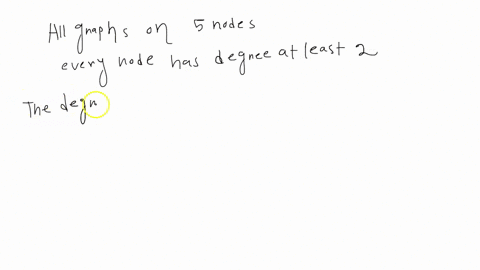 All graphs on 5 nodes
every node has degree at least 2
The degr